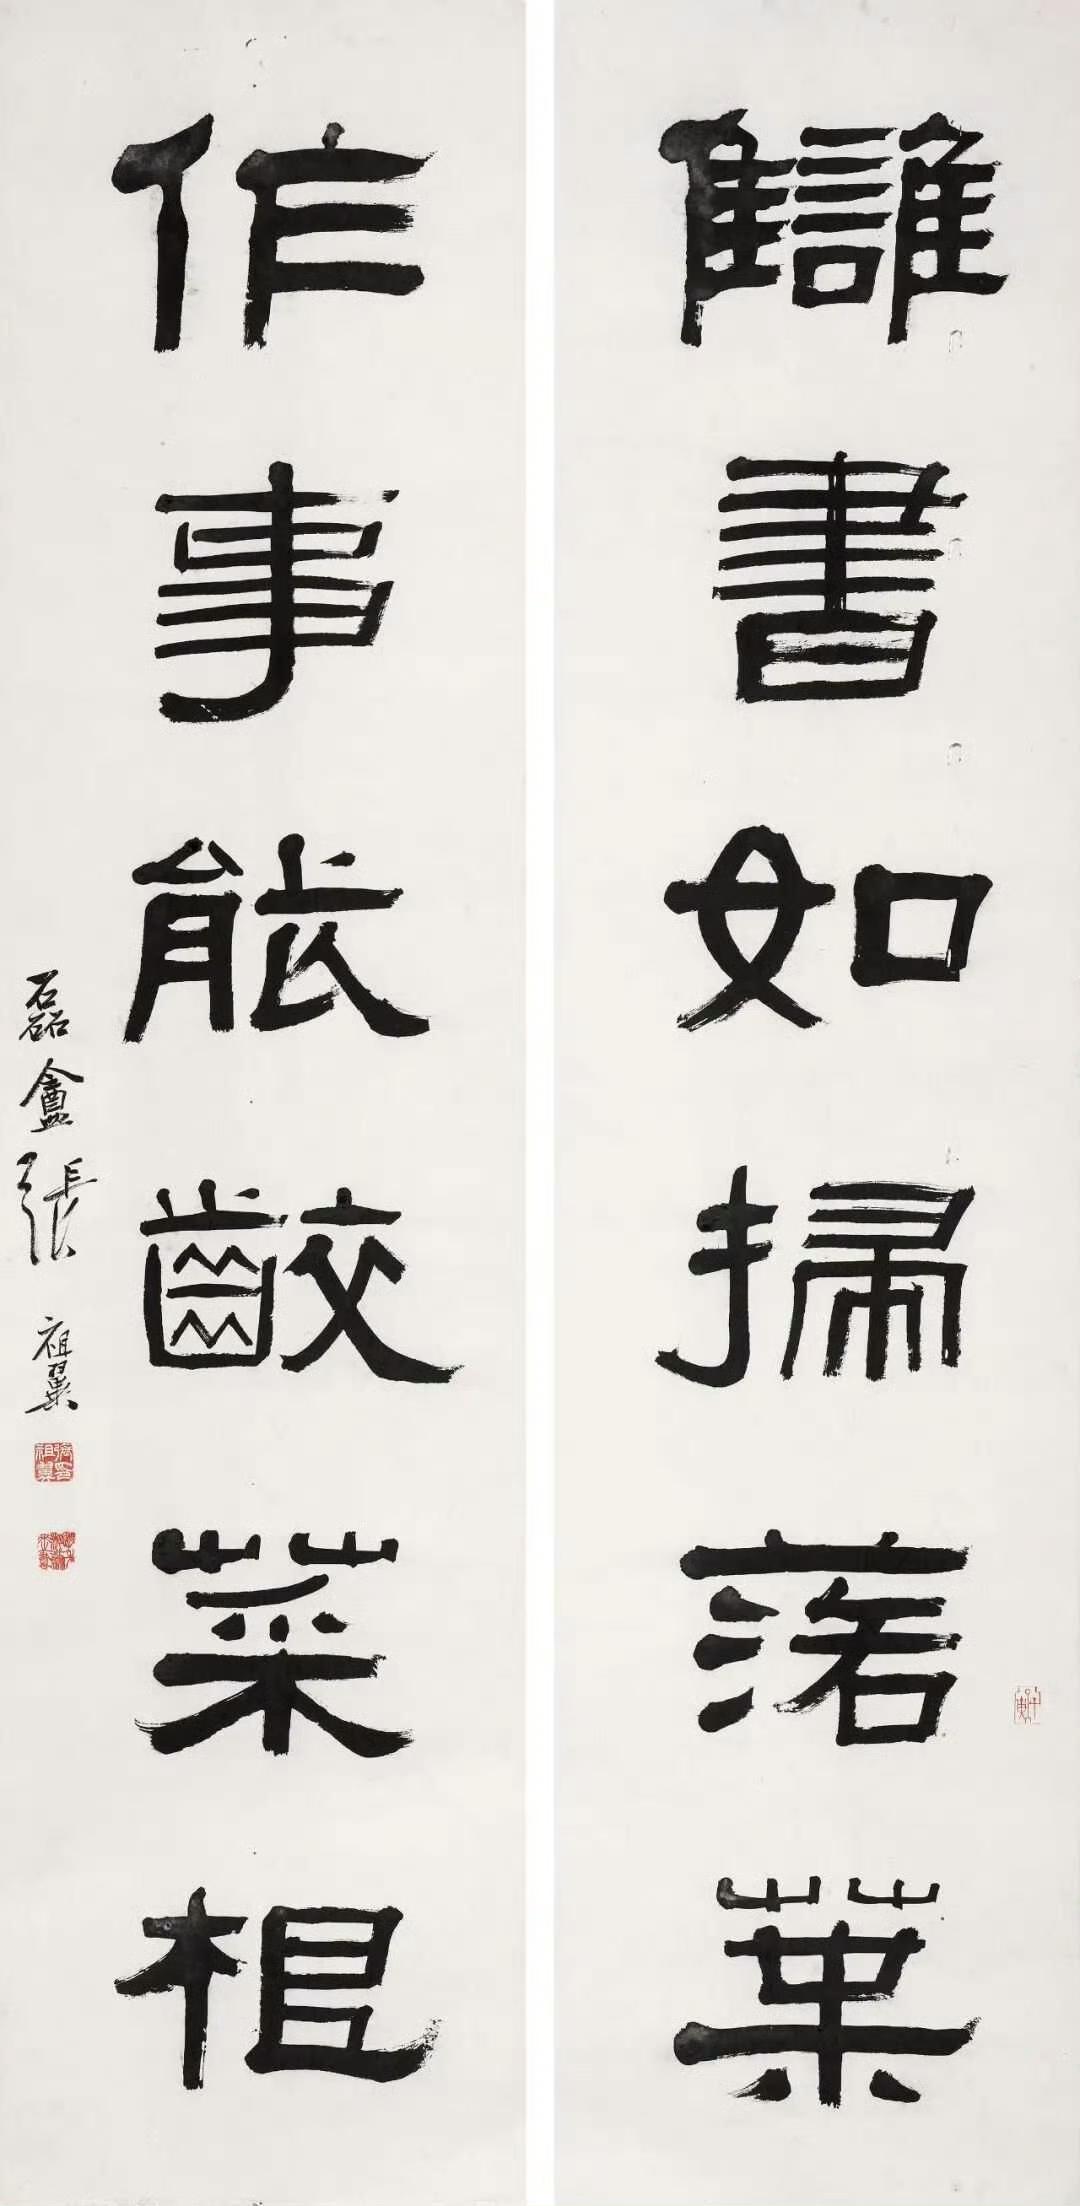 讎書如掃落葉
作事能齩菜根
磊盦張祖翼